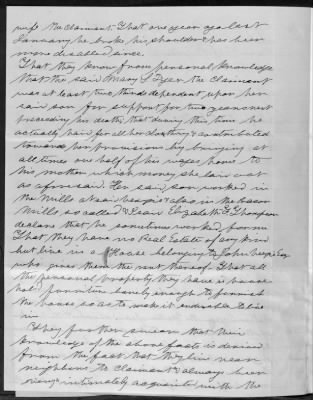 wife the Claimant. That one year ago last
January he broke his shoulder & has been
more disabled since.
That they know from personal knowledge
that the said Mary S Dyer the Claimant
was at least two thirds dependent upon her
said son for support for two years next
preceeding his death, that during this time he
actually paid for all her clothing & contributed
towards her provisions by bringing at
all times one half of his wages home to
his mother which money she laid out
as aforesaid. Her said son worked in
the Mills at said & also in the
Mills so called & Elizabeth Thompson
declares that he sometimes worked for me
That they have no Real Estate of any kind
but live in a House belonging to John
who gives them the rent thereof. That all
the personal property they have is house
hold furniture barely enough to furnish
the house so as to make it endurable to live
in
They further swear that their
knowledge of the above facts is derived
from the fact that they live near
neighbors to Claimant & always been
very intimately acquainted with the